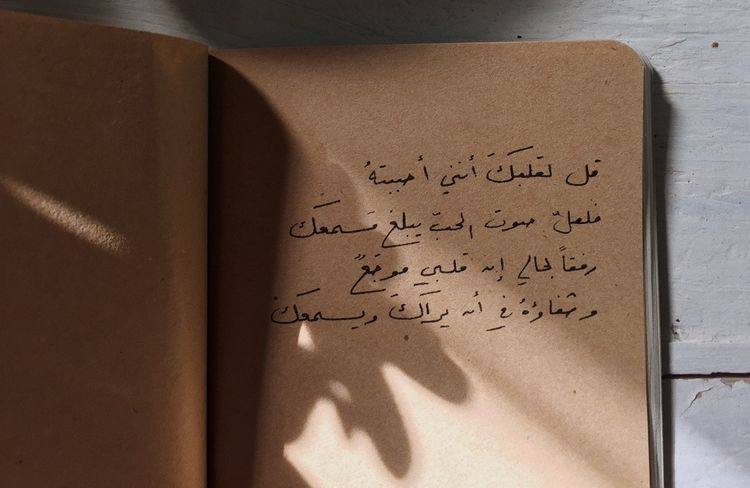 قل لقلبكَ أنني أحببتهُ
فلعلّ صوت الحبّ يبلغ مسمعكَ
رفقاً بحالي إن قلبي موجَعٌ
وشفاؤهُ في أن يراكَ ويسمعكَ